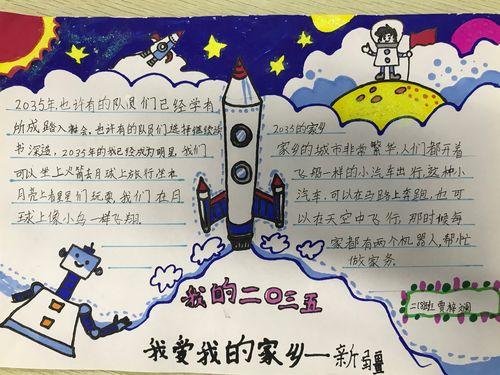 2035年也许有的队员们已经学有
所成踏入社会,也许有的队员们选择继续读
书深造,2035年的我已经成为明星,我们
可以坐上火箭去月球上旅行坐在
月亮上看星星们玩耍,我们在月
球上像小鸟一样飞翔.
2035的家乡
家乡的城市非常繁华,人们都开着
飞船一样的小汽车出行,这种小
汽车,可以在马路上奔跑,也可
以在天空中飞行,那时候每
家都有两个机器人,帮忙
做家务.
我的二〇三五
我爱我的家乡一新疆